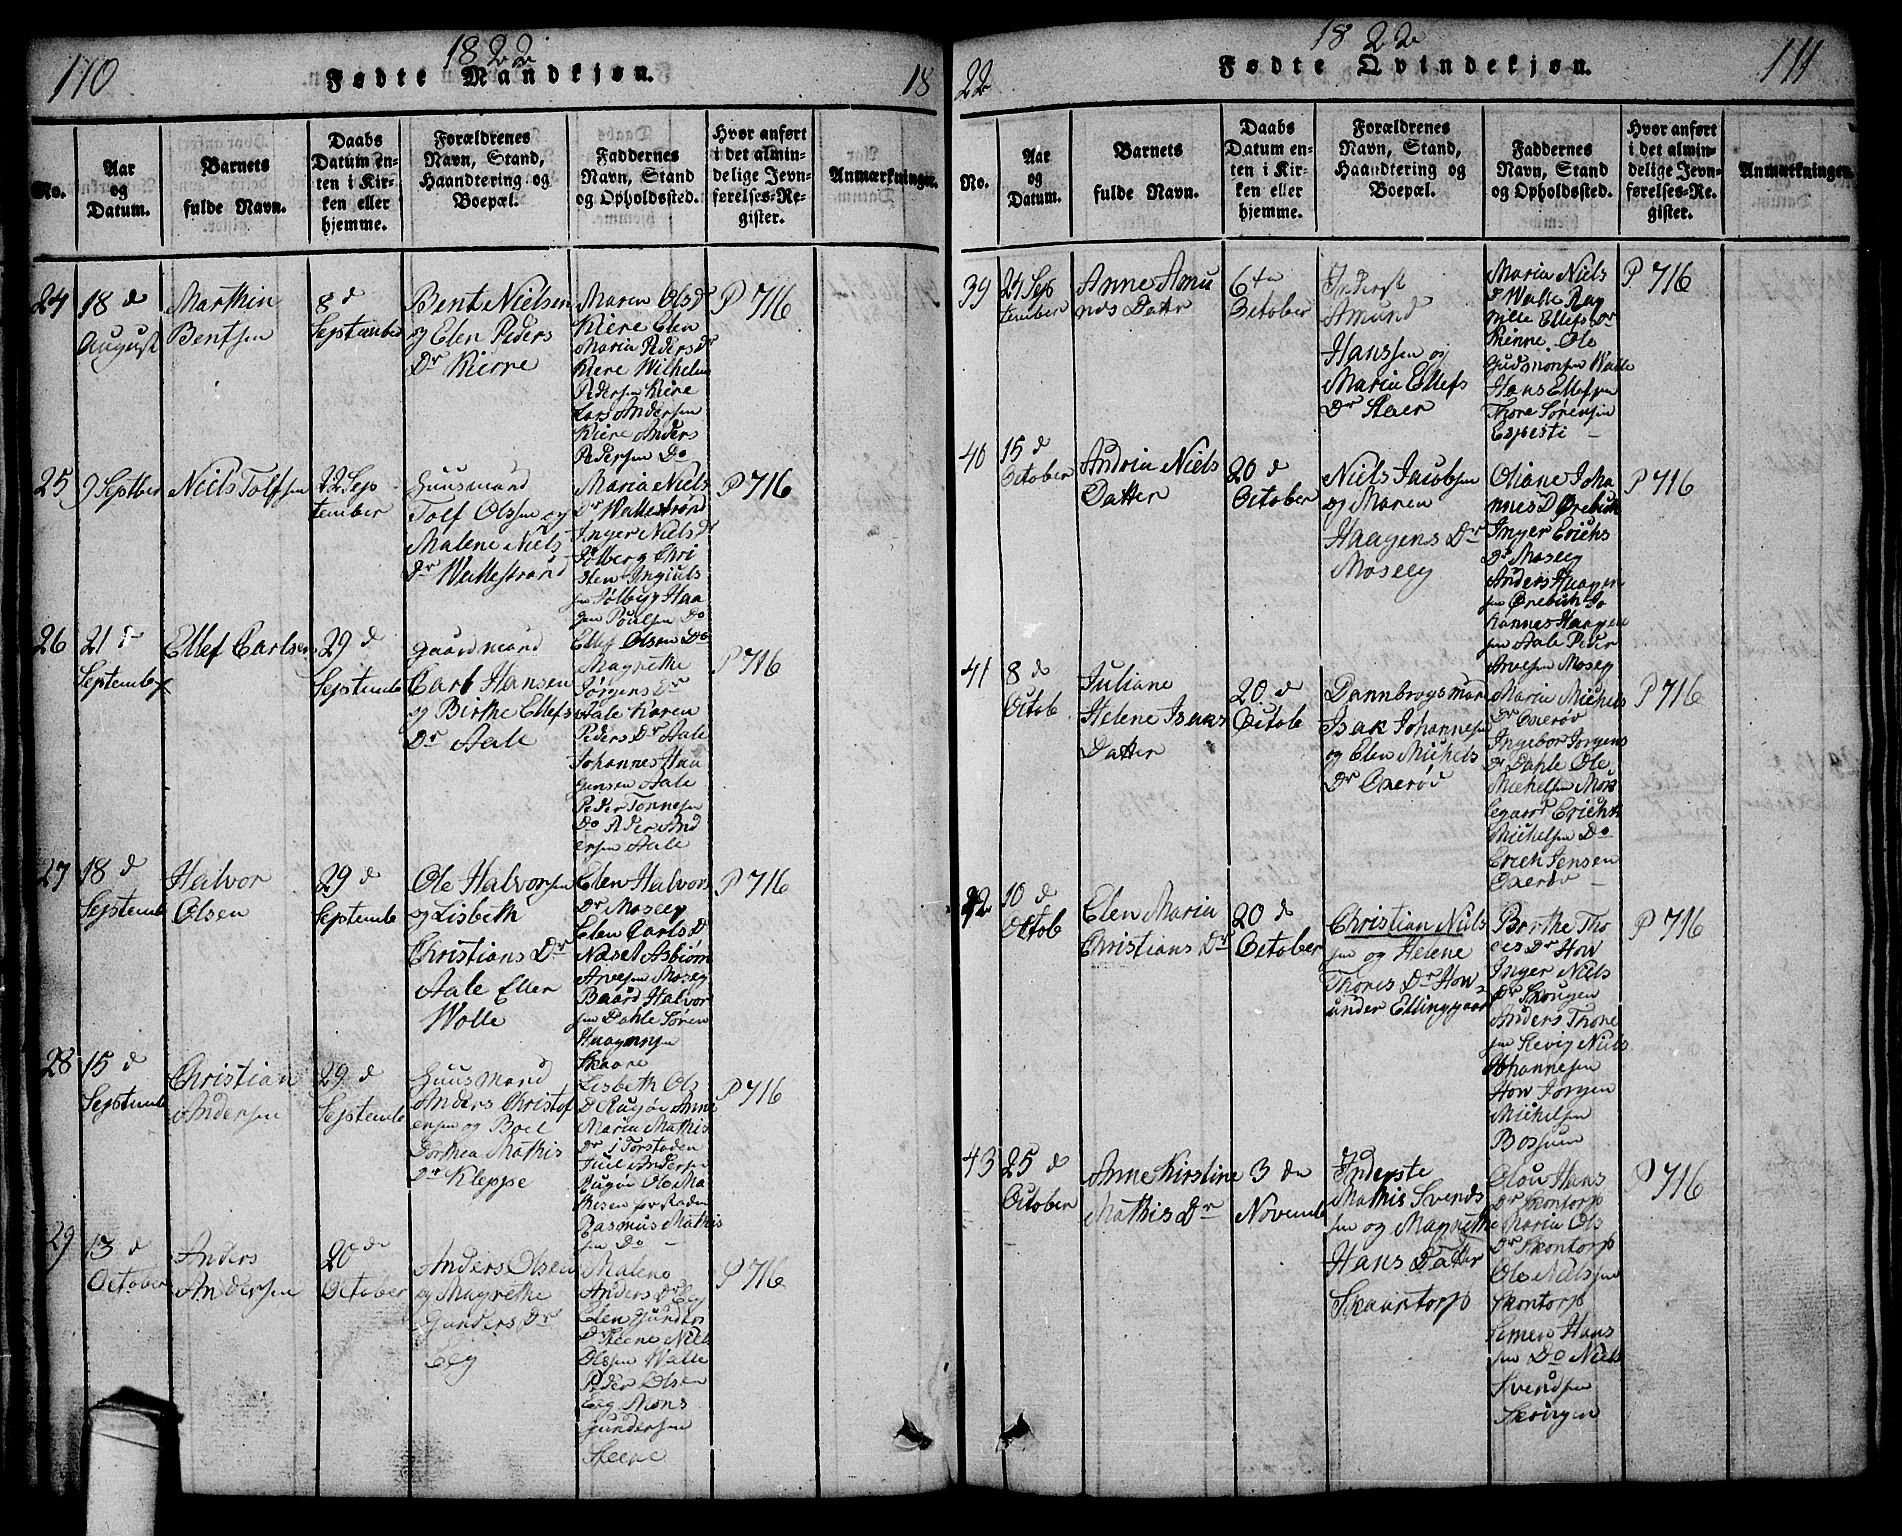 110
1822
Fødte Mandkjøn.
18
No.
Aar
og
Datum.
Barnets
fulde Navn.
Daabs
Datum en-
ten i Kir-
ken eller
hjemme.
Forældrenes
Navn, Stand,
Haandtering og
Boepæl.
Faddernes
Navn, Stand
og Opholdssted.
Hvor anført
i det almin-
delige Jevn-
førelses-Re-
gister.
Anmærkninger.
24
18 d
August
Marthin
Bentsen
8 d
September
Bent Nielsen
og Elen Peders
Dr Kierre
Maren Olsdr
Kiere Elen
Maria Peders Dr
Kiere Wilhelm
Pedersen Kiere
Lars Andersen
Kiere Anders
Pedersen Do
P 716
25
9 Septber
Niels Tolfsen
22 Sep
tember
Huusmand
Tolf Olssen og
Malene Niels
Dr Wallestrand
Maria Niels
Dr Wallestrønd
Inger Niels Dr
Sølberg Chri
sten Ingiuls
sen Sølbyg Haa
gen Poulsen Do
P 716
26
21 d
September
Ellef Carlsen
29 d
Septembe
Gaardmand
Carl Hansen
og Birthe Ellefs
Dr Aale
Ellef Olsen Do
Magrethe
Jørgens Dr
Aale Karen
Peders Dr Aale
Johannes Haa
gensen Aale
Peder Tønnesen
Do Peder And
ersen Aale
P 716
27
18 d
Septemb
Halvor
Olsen
29 d
Septembe
Ole Halvorsen
og Lisbeth
Christians Dr
Aale Eller
Wolle
Elen Halvors
Dr Moseeg
Elen Carls D
Næset Asbiørn
Arvesen Moseg
Baard Halvor
sen Dahle Søren
Haagensen
Skaare
P 716
28
15 d
Septemb
Christian
Andersen
29 d
Septembe
Huusmand
Anders Christof
ersen og Boel
Dorthea Mathis
Dr Kleppe
Lisbeth Ols
D Raugøe Anne
Maria Mathis
Dr i Torstøden
Juel Andersen
Raugøe Ole Ma
thisen
Rasmus Mathis
sen Do
P 716
29
13 d
October
Anders
Andersen
20 de
October
Anders Olsen
og Magrethe
Gunders Dr
Elg
Malene
Anders Dr Elg
Elen Gunders
Dr Steene Niels
Olssen Walle
Peder Olsen
Elg Mons
Gundersen
Steene
P 716
1822
22
Fødte Qvindekjøn.
111
No.
Aar
og
Datum.
Barnets
fulde Navn.
Daabs
Datum en-
ten i Kir-
ken eller
hjemme.
Forældrenes
Navn, Stand,
Haandtering og
Boepæl.
Faddernes
Navn, Stand
og Opholdssted.
Hvor anført
i det almin-
delige Jevn-
førelses-Re-
gister.
Anmærkninger.
39
24 Sep
tember
Anne Amu
nds Datter
6te
October
Inderst
Amund
Hanssen og
Maria Ellefs
Dr Staer
Maria Niels
D Walle Rag
nille Ellefs Dr
Kienne Ole
Gudmonsen Walle
Hans Ellefsen
Thore Sørensen
Espesti
P 716
40
15 d
October
Andria Niels
Datter
20 d
October
Niels Jacobsen
og Maren
Haagens Dr
Moseeg
Oliane Joha
nnes D Ørebek
Inger Erichs
Dr Moseeg
Anders Haagen
sen Ørebek Jo
hannes Haagen
sen Aale Peder
Arvesen Moseg
P 716
41
8 d
Octob
Juliane
Helene Isaas
Datter
20 d
Octob
Dannbrogsmand
Isak Johannesen
og Elen Michels
Dr Oxerøv
Maria Michels
Dr Oxerøv
Ingebor Jørgens
Dr Dahle Ole
Michelsen Mors
egaard Erich
Michelsen Do
Erich Jensen
Oxerøv
P 716
42
10 d
Octob
Elen Maria
Christians Dr
20 d
October
Christian Niels
sen og Helene
Thores Dr How
under Ellinggaard
Berthe Tho
res Dr How
Inger Niels
Dr Skougen
Anders Thore
sen Kevig Niels
Johannesen
How Jørgen
Michelsen
Bossum
P 716
43
25 d
October
Anne Kirstine
Mathis Dr
3 de
Novemb
Inderste
Mathis Svends
sen og Magrethe
Hans Datter
Skaartorp
Olou Hans
Dr Skontorp
Maria Ols
Dr Skontorp
Ole Nielssen
Skontorp
Simen Hans
sen Do Niels
Svendsen
Skougen
P 716